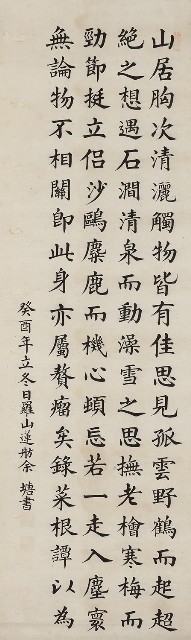 山居胸次清灑觸物皆有佳思見孤雲野鶴而起超
絕之想遇石澗清泉而動澡雪之思撫老檜寒梅而
勁節挺立侶沙鷗麋鹿而機心頓忘若一走入塵寰
無論物不相關卽此身亦屬贅瘤矣錄菜根譚以為
癸酉年立冬日羅山蓮舫余塘書